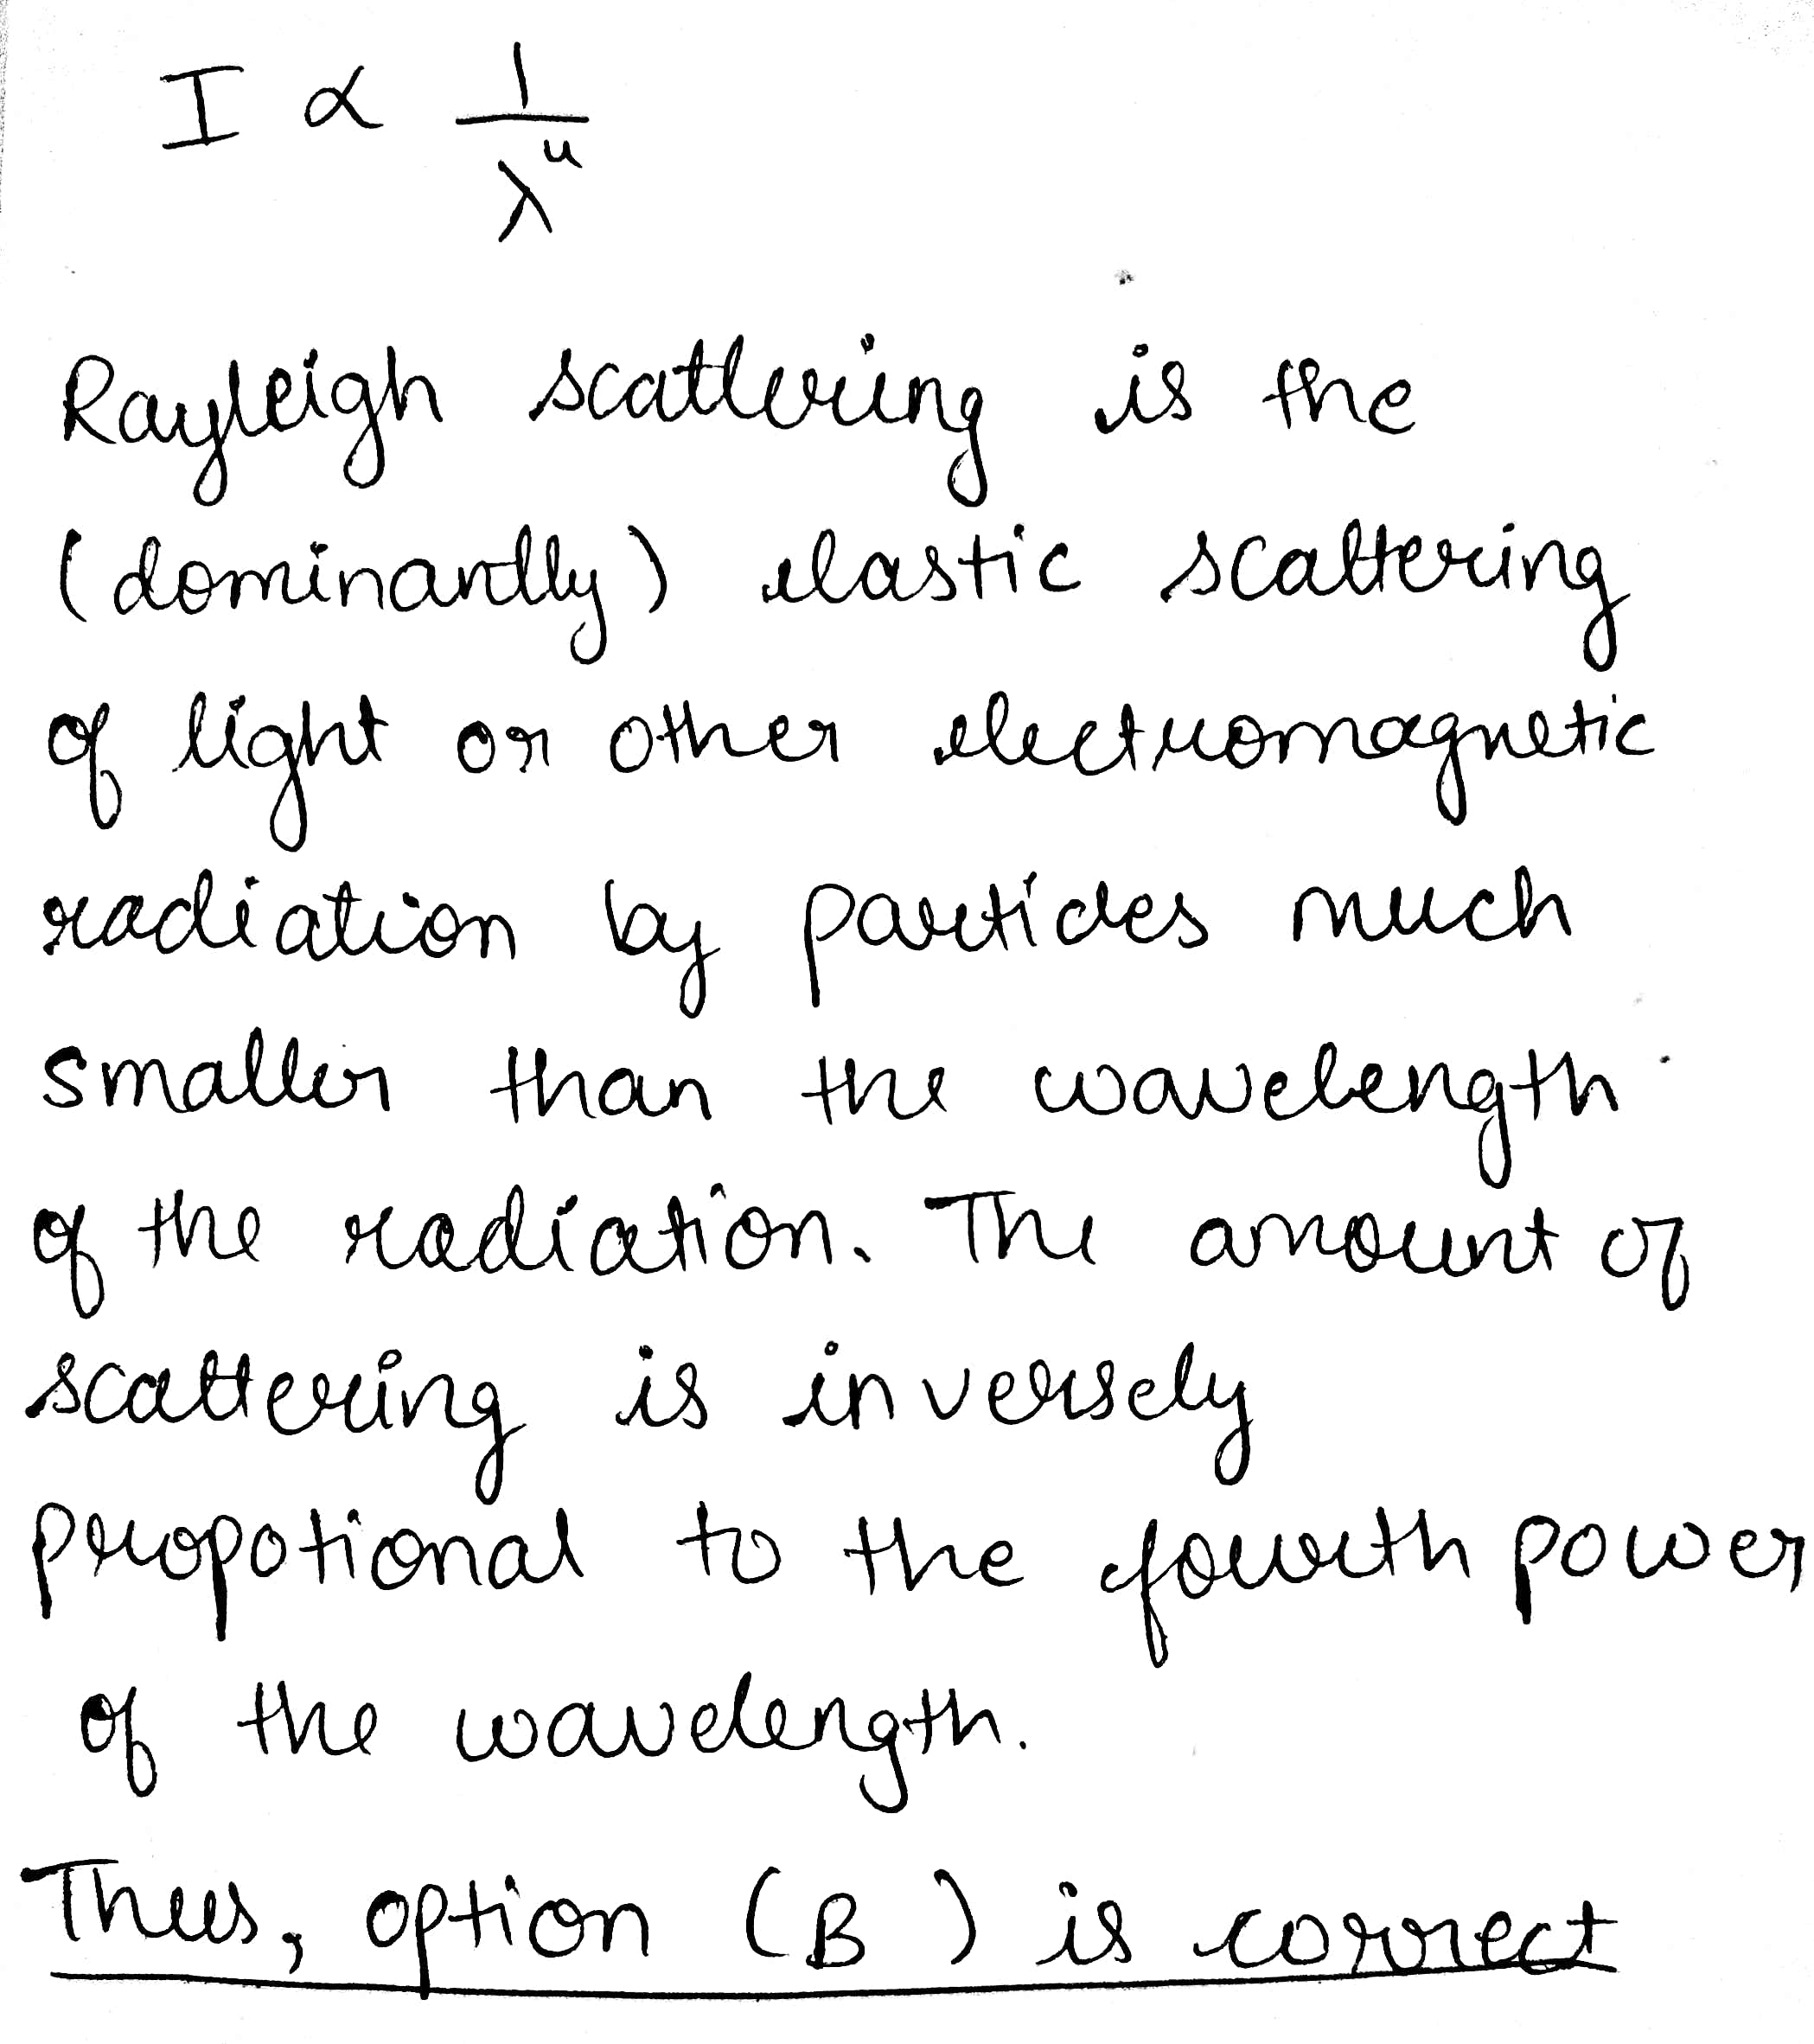 I ∝ 1/λ⁴
Rayleigh scattering is the
(dominantly) elastic scattering
of light or other electromagnetic
radiation by particles much
smaller than the wavelength
of the radiation. The amount of
scattering is inversely
propotional to the fourth power
of the wavelength.
Thus, option (B) is correct